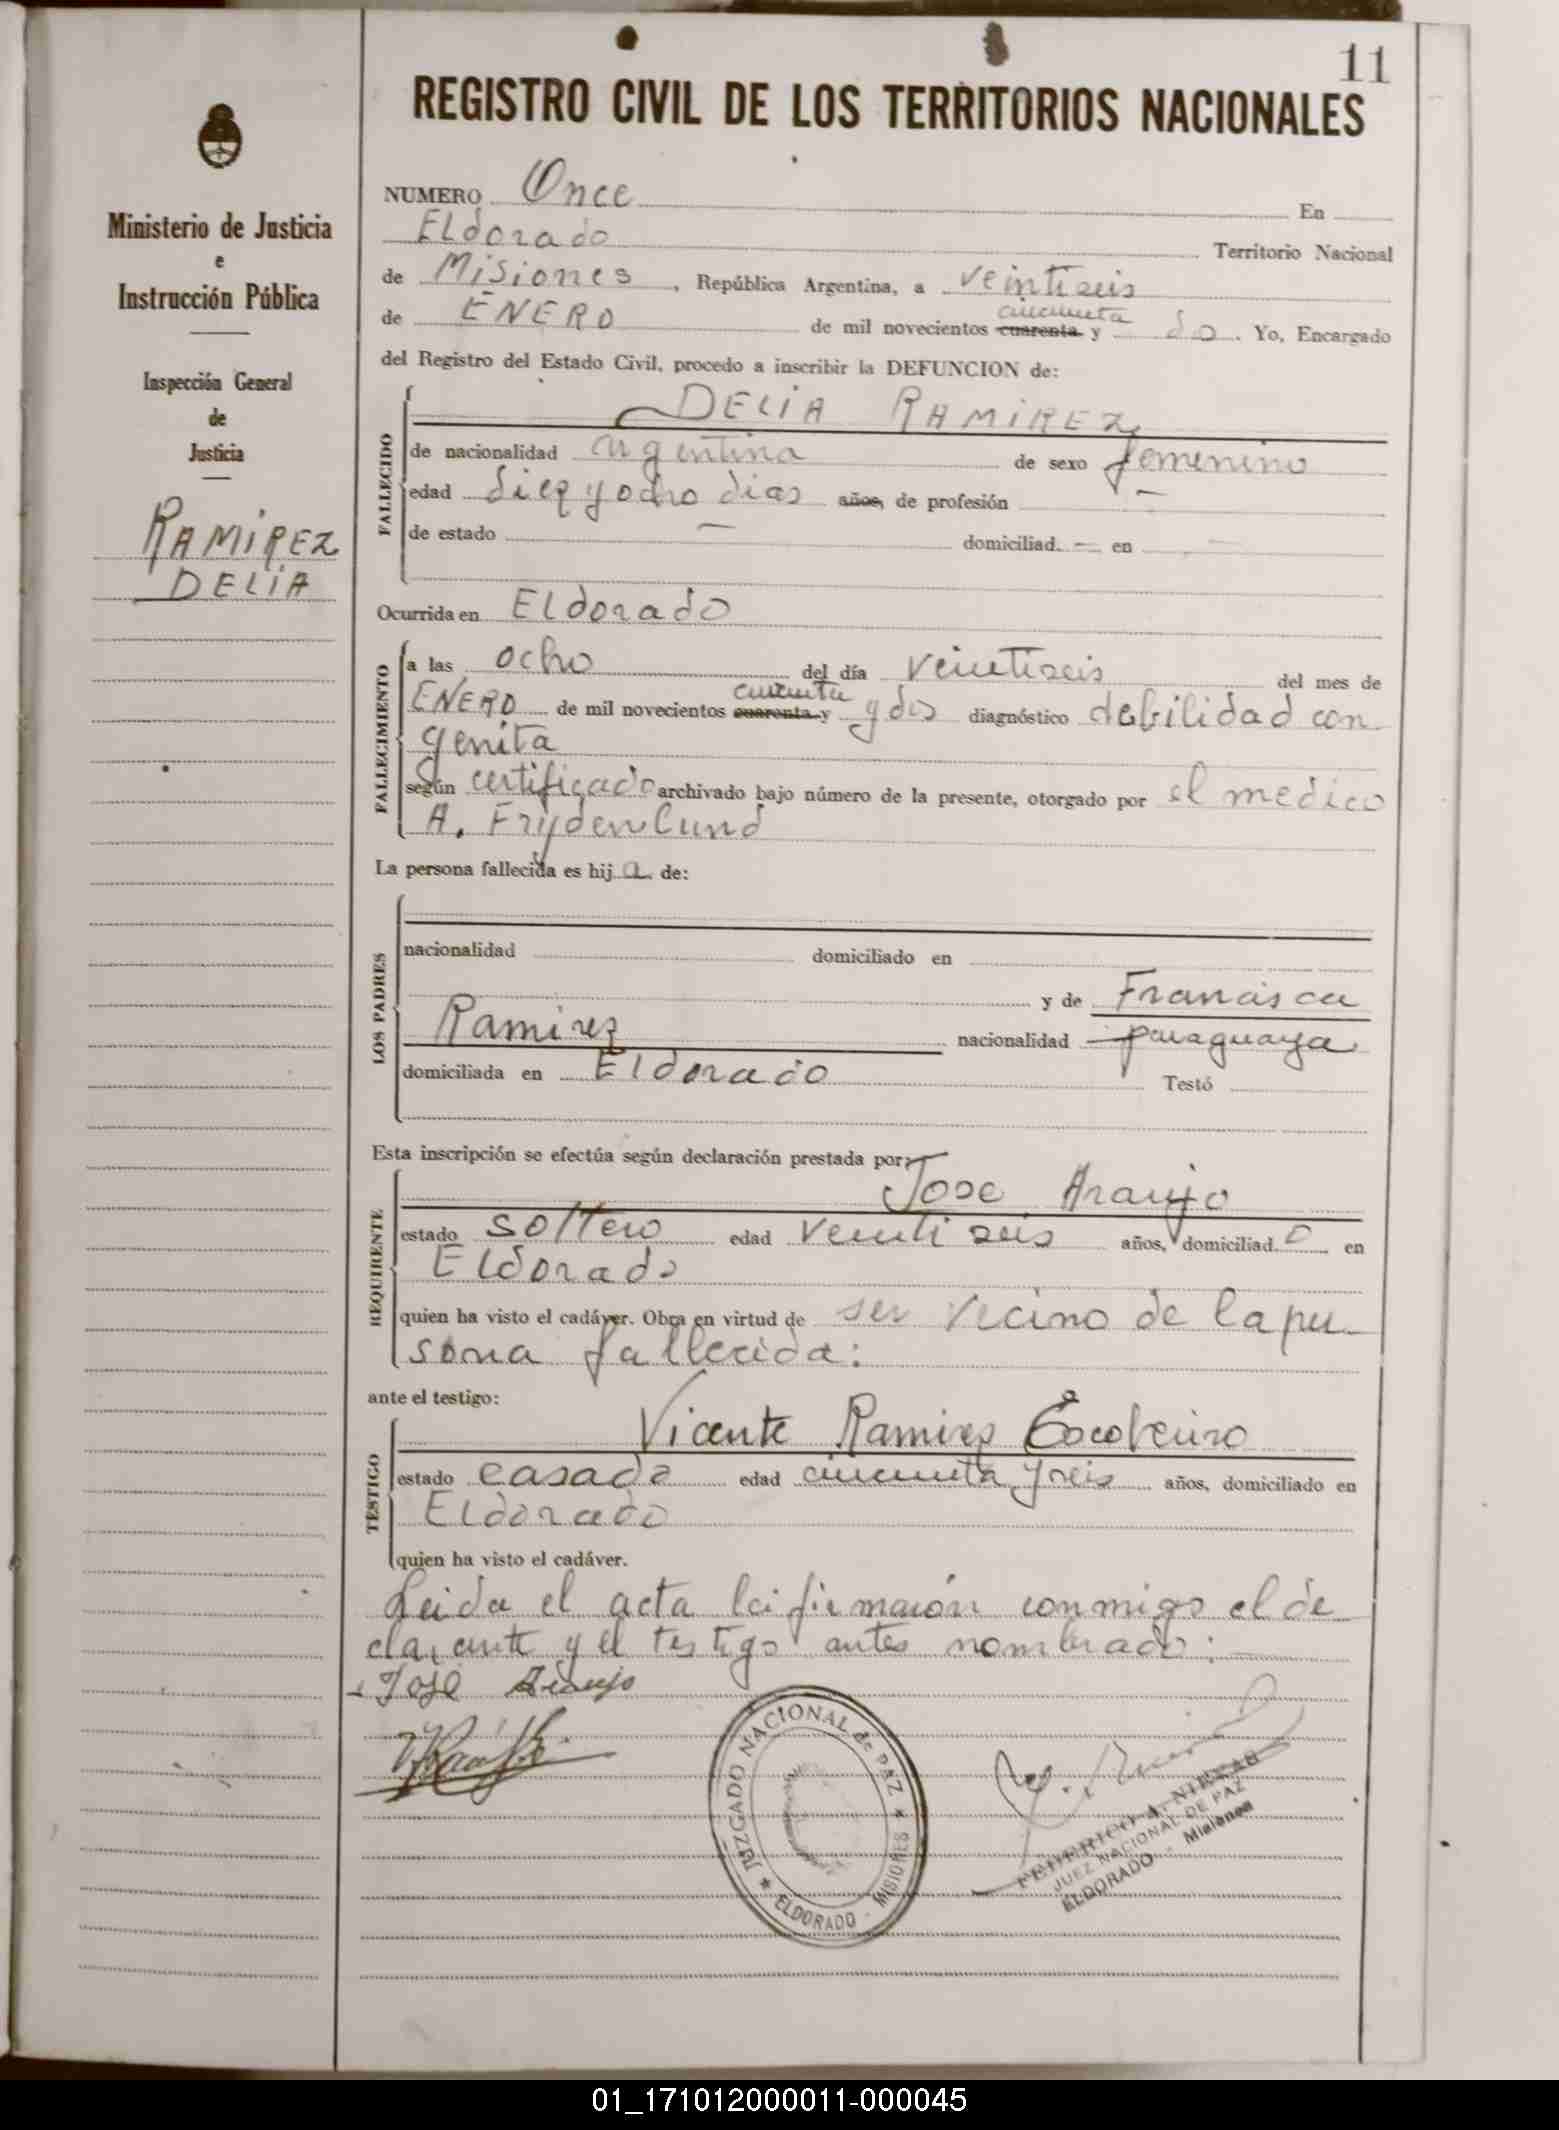 11
REGISTRO CIVIL DE LOS TERRITORIOS NACIONALES
Ministerio de Justicia
e
Instrucción Pública
Inspección General
de
Justicia
RAMIREZ
DELIA
NUMERO Once En
Eldorado Territorio Nacional
de Misiones, República Argentina, a veintiseis
cincuenta
de ENERO de mil novecientos cuarenta y do. Yo, Encargado
del Registro del Estado Civil, procedo a inscribir la DEFUNCION de:
DELIA RAMIREZ
FALLECIDO
de nacionalidad argentina de sexo femenino
edad diez y ocho dias años, de profesión —
de estado — domiciliad. — en —
Ocurrida en Eldorado
FALLECIMIENTO
a las ocho del día veintiseis del mes de
cincuenta
ENERO de mil novecientos cuarenta y y dos diagnóstico debilidad con
genita
según certificado archivado bajo número de la presente, otorgado por el medico
A. Frydenlund
La persona fallecida es hija de:
LOS PADRES
nacionalidad domiciliado en
y de Francisca
Ramirez nacionalidad paraguaya
domiciliada en Eldorado Testó
Esta inscripción se efectúa según declaración prestada por:
Jose Araujo
REQUIRENTE
estado soltero edad veinti seis años, domiciliado en
Eldorado
quien ha visto el cadáver. Obra en virtud de ser vecino de la per
sona fallecida:
ante el testigo:
Vicente Ramirez
TESTIGO
estado casado edad cincuenta y seis años, domiciliado en
Eldorado
quien ha visto el cadáver.
Leida el acta la firmaron conmigo el de
clarante y el testigo antes nombrado:
José Araujo
JUZGADO NACIONAL de PAZ
ELDORADO - MISIONES
FEDERICO A.
JUEZ NACIONAL DE PAZ
ELDORADO - Misiones
01_171012000011-000045